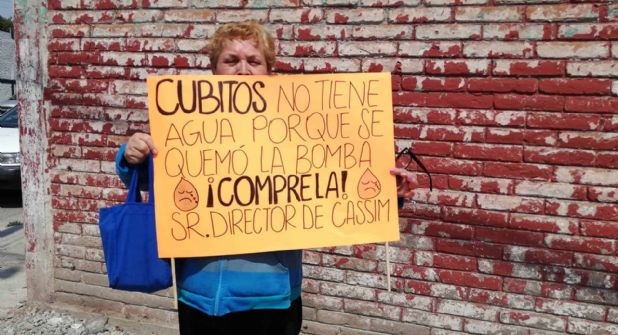 CUBITOS NO TIENE
AGUA PORQUE SE
QUEMÓ LA BOMBA
¡COMPRELA!
SR. DIRECTOR DE CASSIM